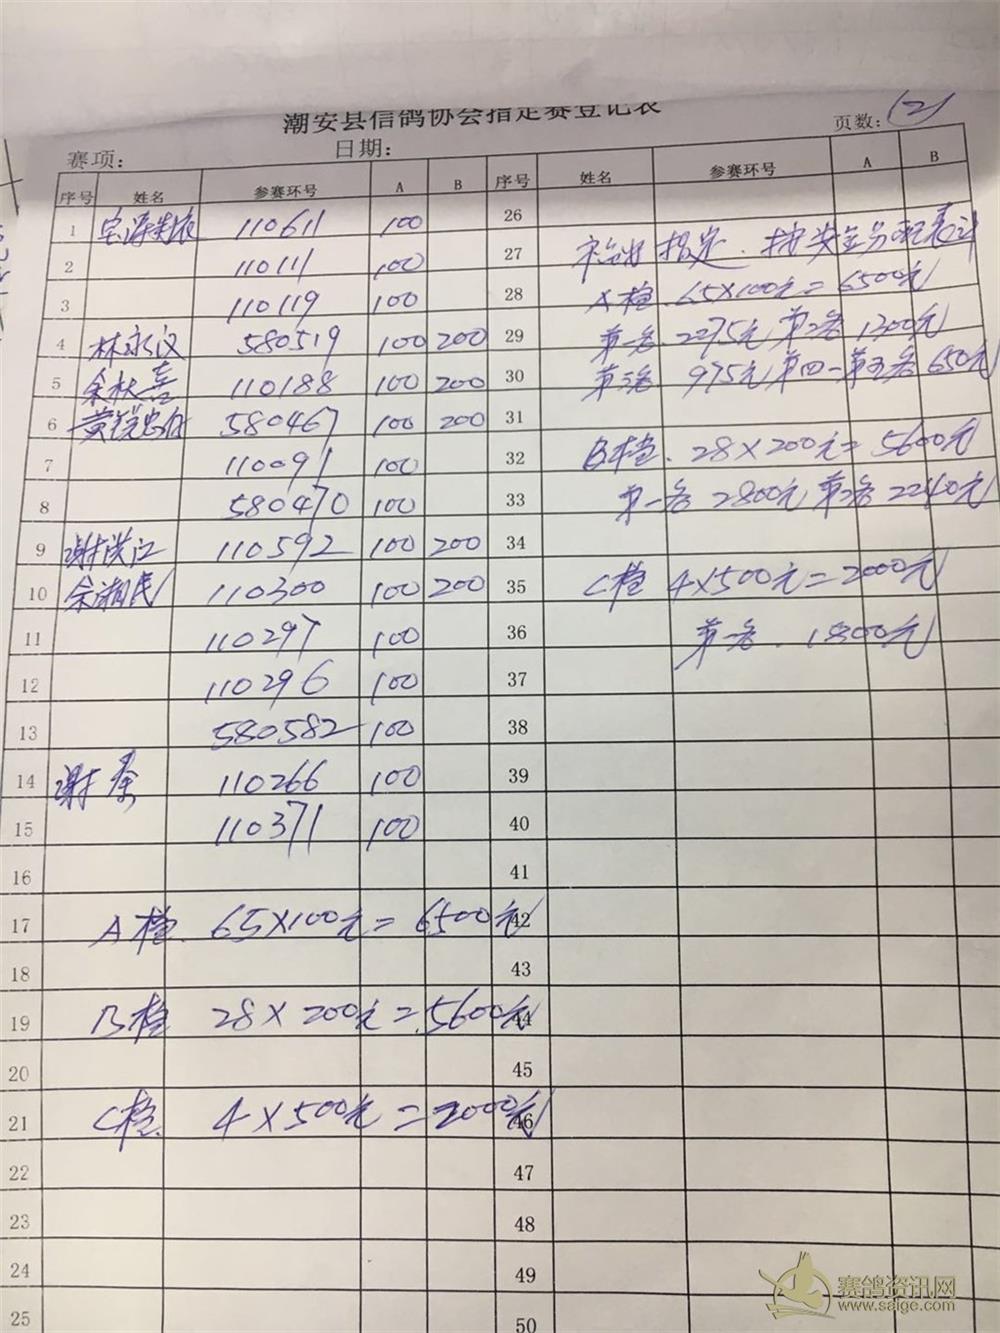 潮安县信鸽协会指定赛登记表
赛项: 日期: 页数: (2)
序号 姓名 参赛环号 A B 序号 姓名 参赛环号 A B
1 110611 100 26
2 110111 100 27 指定.
3 110119 100 28 A档. 65×100元=6500元
4 林永汉 580519 100 200 29 第一名.2275元 第2名 1300元
5 余秋喜 110188 100 200 30 第3名. 975元 第四一第五名 650元
6 黄锐忠 580467 100 200 31
7 110091 100 32 B档. 28×200元=5600元
8 580470 100 33 第一名 2800元 第2名 2240元
9 谢洪江 110592 100 200 34
10 余湘民 110300 100 200 35 C档 4×500元=2000元
11 110297 100 36 第一名. 1800元
12 110296 100 37
13 580582 100 38
14 谢 110266 100 39
15 110371 100 40
16 41
17 A档. 65×100元=6500元 42
18 43
19 B档 28×200元=5600元 44
20 45
21 C档. 4×500元=2000元 46
22 47
23 48
24 49
25 50
赛鸽资讯网
www.saige.com